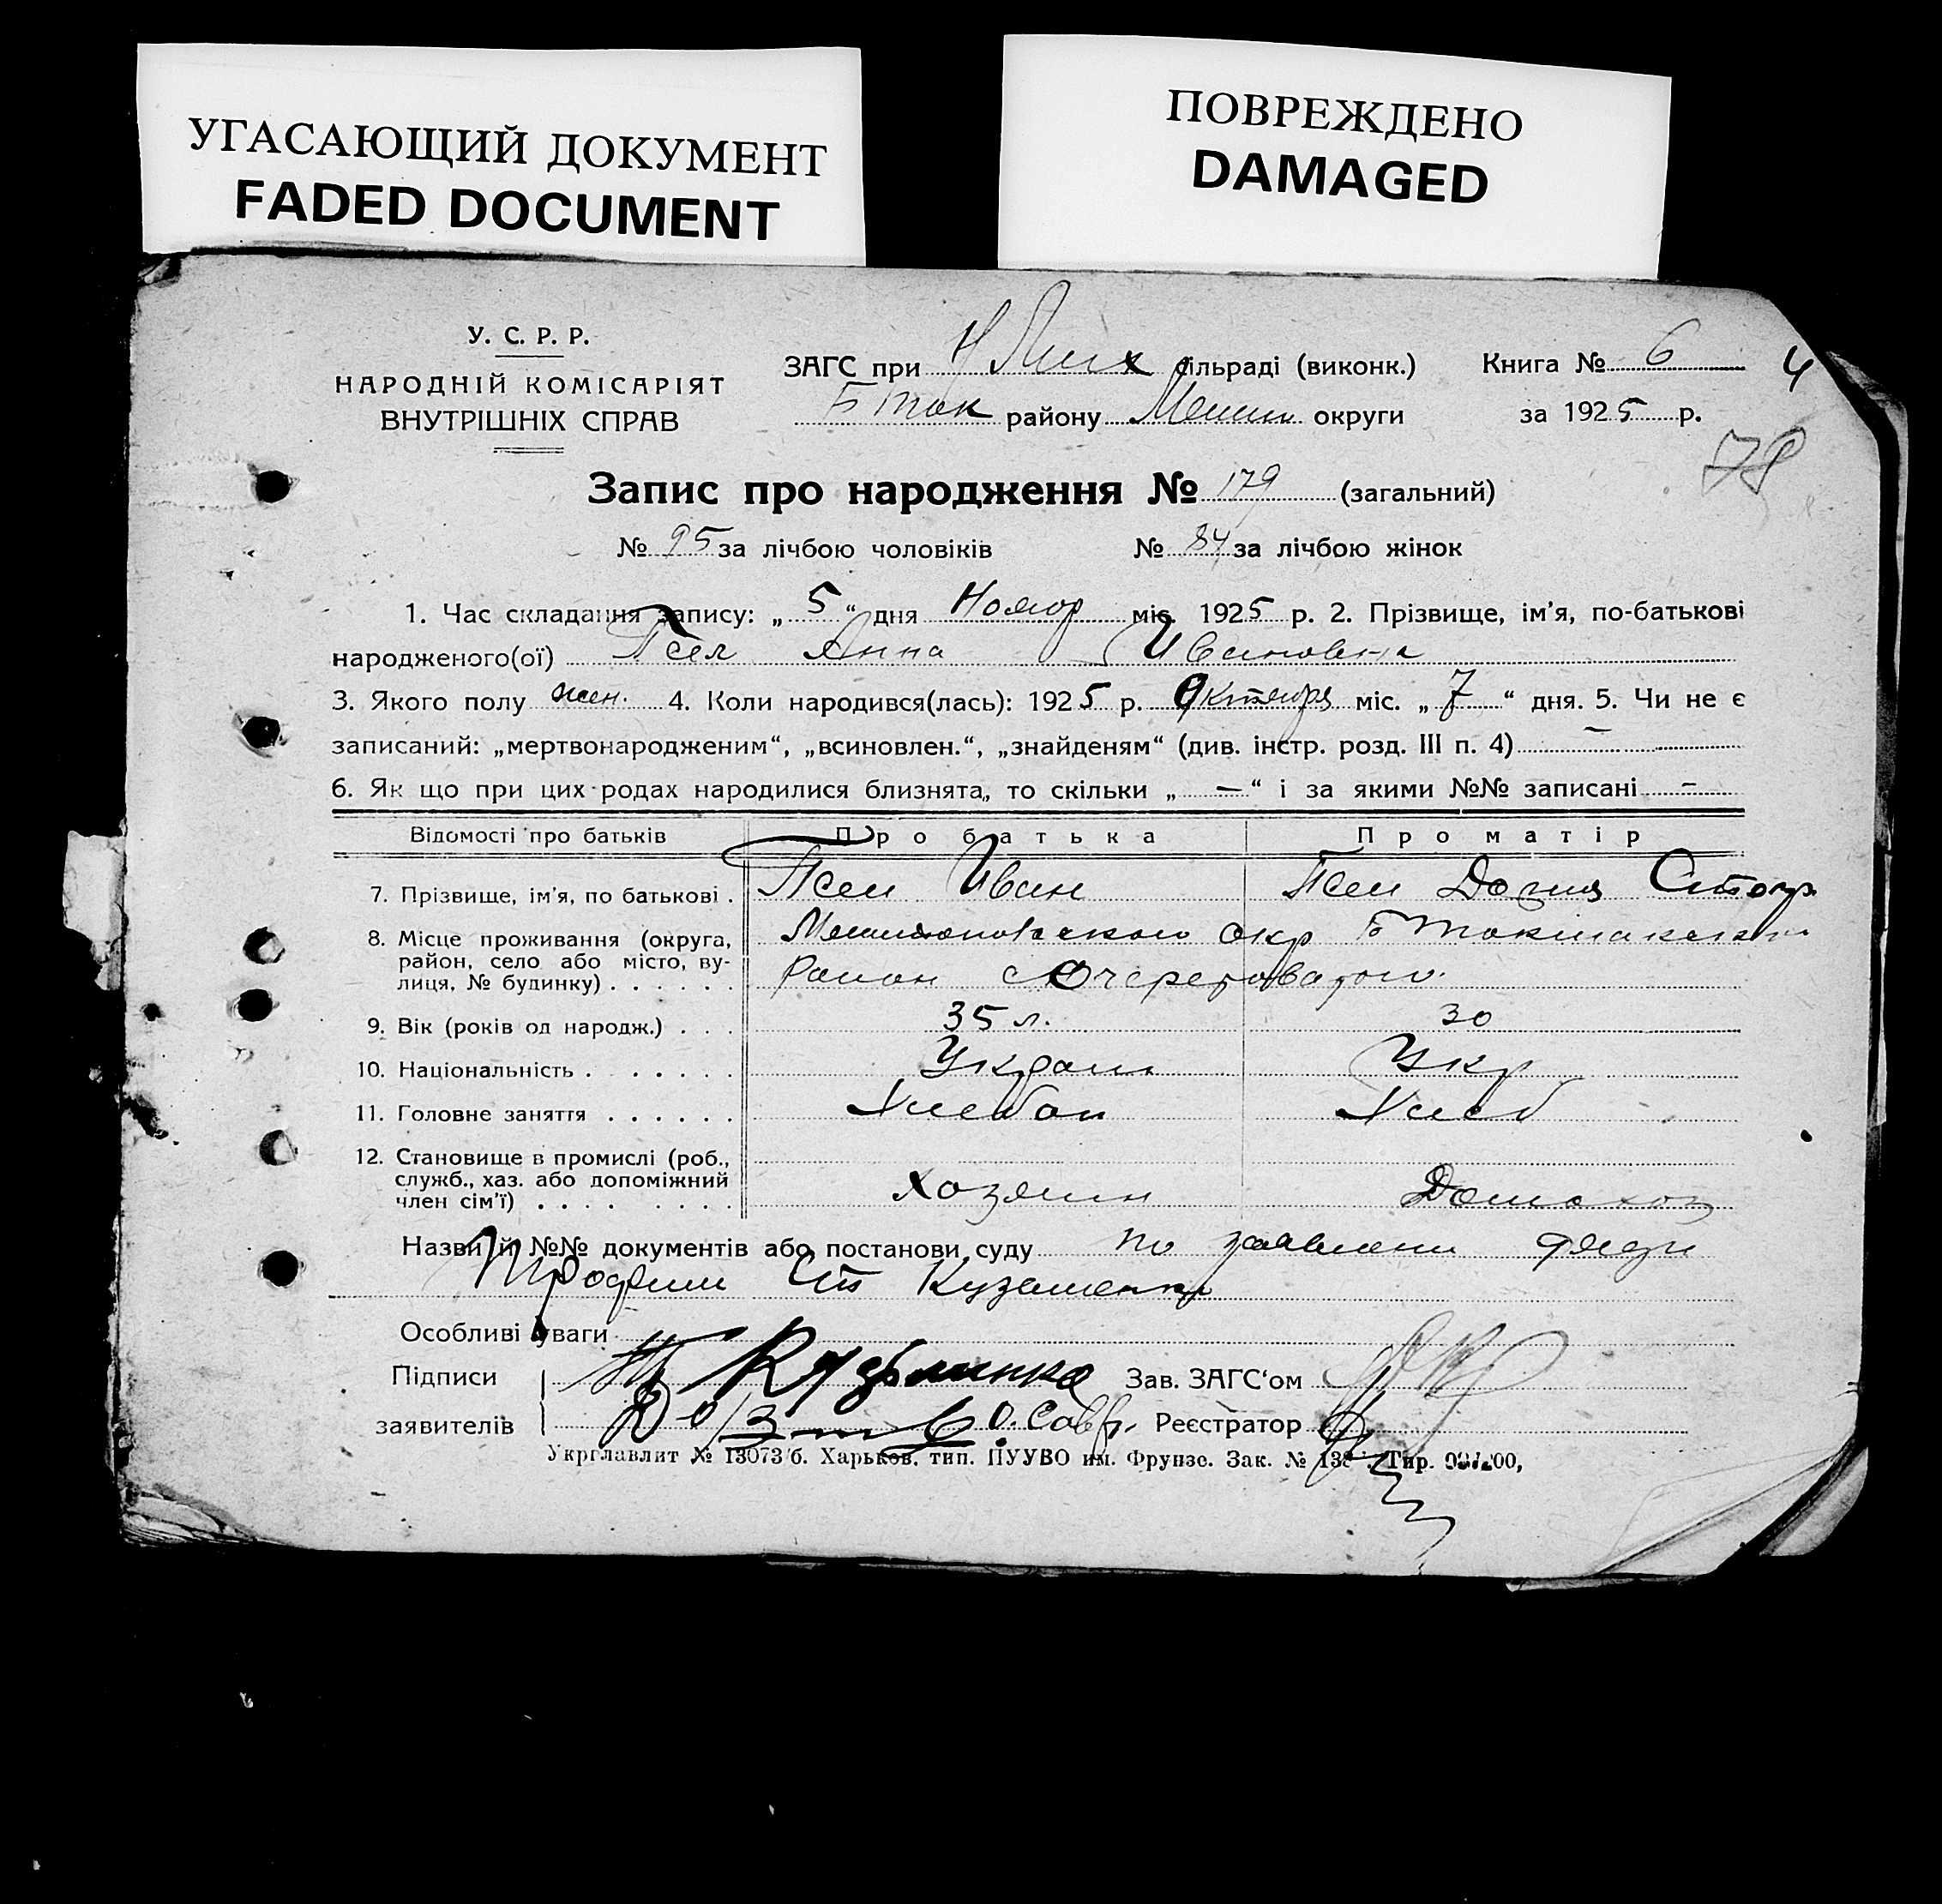 УГАСАЮЩИЙ ДОКУМЕНТ
FADED DOCUMENT
ПОВРЕЖДЕНО
DAMAGED
У. С. Р. Р.
НАРОДНІЙ КОМІСАРІЯТ
ВНУТРІШНІХ СПРАВ
ЗАГС при сільраді (виконк.) Книга № 6 4
Б Ток району округи за 1925 р.
78
Запис про народження № 179 (загальний)
№ 95 за лічбою чоловіків № 84 за лічбою жінок
1. Час складання запису: „ 5 “ дня Ноябр міс. 1925 р. 2. Прізвище, ім’я, по-батькові
народженого(ої) Псел Анна Ивановна
3. Якого полу жен. 4. Коли народився(лась): 1925 р. Октября міс. „ 7 “ дня. 5. Чи не є
записаний: „мертвонародженим“, „всиновлен.“, „знайденям“ (див. інстр. розд. III п. 4) —
6. Як що при цих родах народилися близнята, то скільки „ — “ і за якими №№ записані —
Відомості про батьків Про батька Про матір
7. Прізвище, ім’я, по батькові . Псел Иван Псел
8. Місце проживання (округа, окр Б Токмакского
район, село або місто, ву- Район с Очеретоватого
лиця, № будинку) . . . . . .
9. Вік (років од народж.) . . . 35 л. 30
10. Національність . . . . . . Украин Укр
11. Головне заняття . . . . . . Хлебоп Хлеб
12. Становище в промислі (роб.,
служб., хаз. або допоміжний
член сім’ї) . . . . . . . . Хозяин Домахоз
Назви й №№ документів або постанови суду по заявлени дяди
Трофим Ст Кузьменко
Особливі уваги
Підписи Т Кузьминко Зав. ЗАГС‘ом
заявителів Реєстратор
Укрглавлит № 13073/б. Харьков. тип. ПУУВО им. Фрунзе. Зак. № Тир.